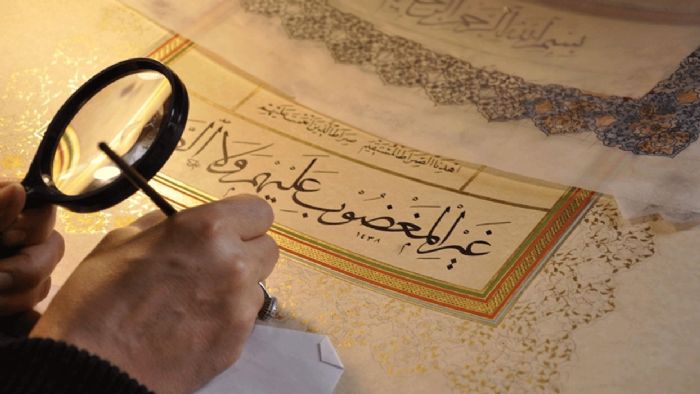 بسم الله الرحمن الرحيم
اهدنا الصراط المستقيم صراط الذين انعمت عليهم
غَيْرِ الْمَغْضُوبِ عَلَيْهِمْ وَلَا
١٤٣٨